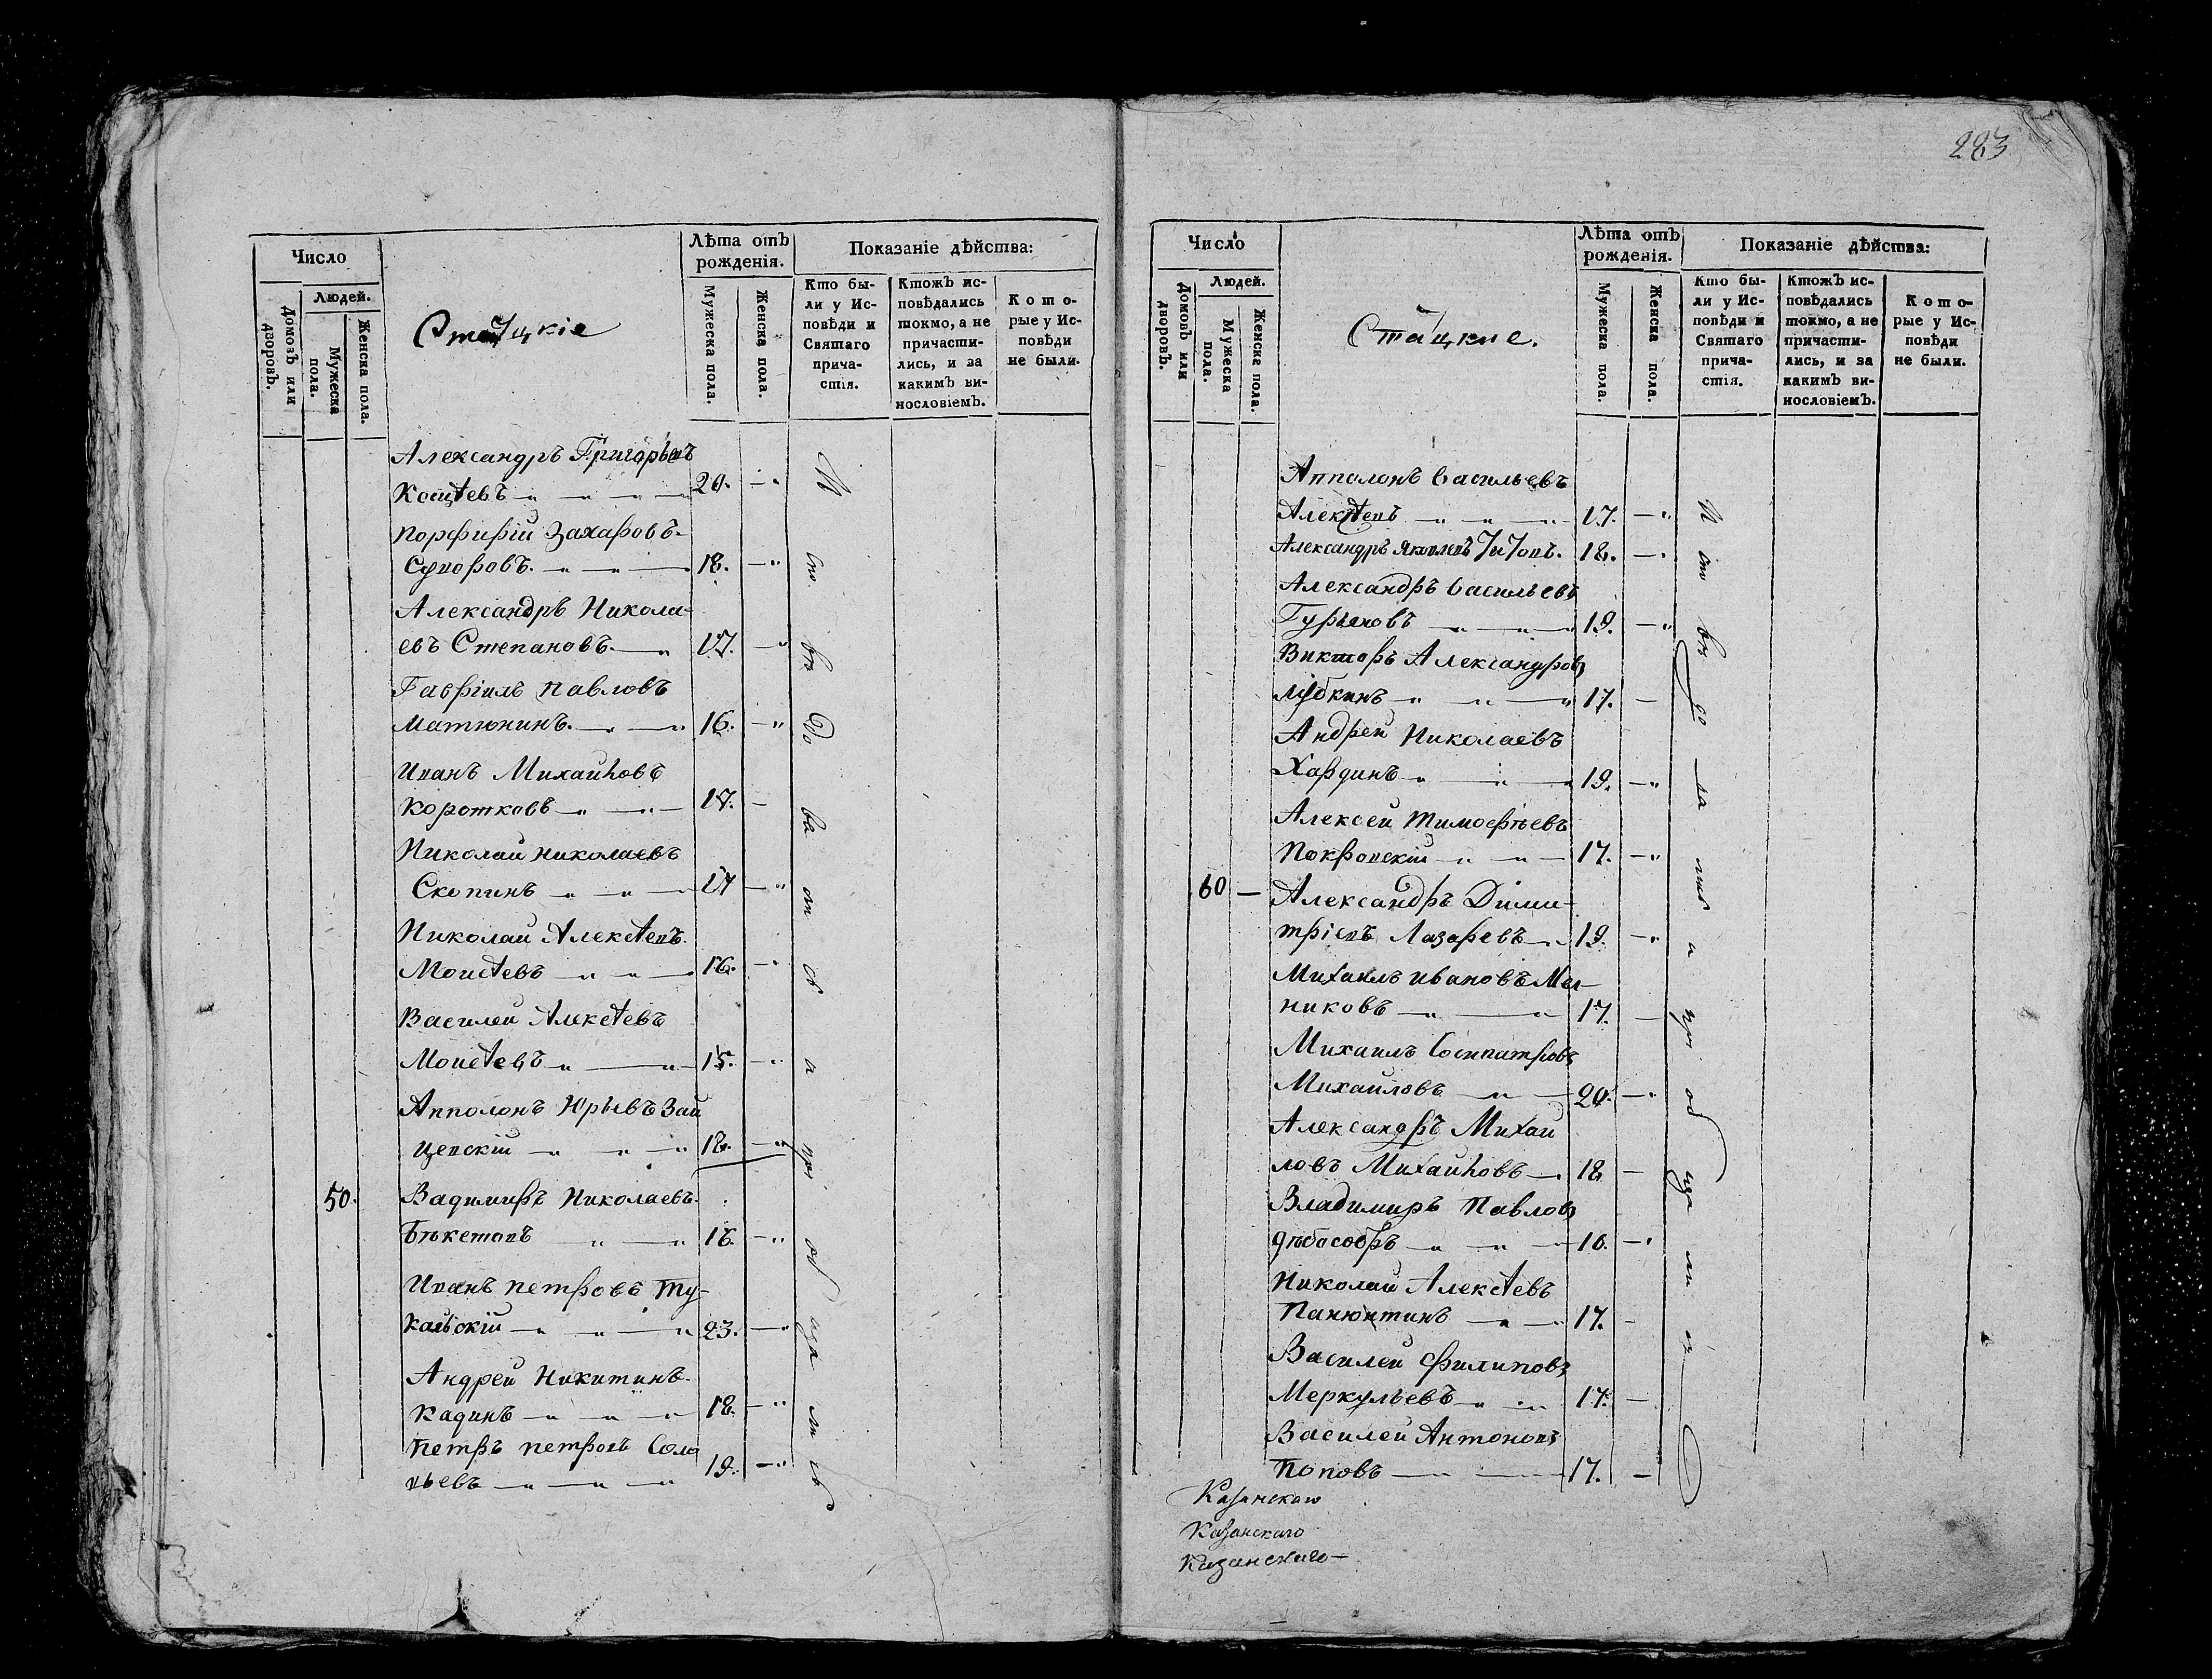 283
Число
Людей.
Домовъ или дворовъ.
Мужеска пола.
Женска пола.
Статцкіе
Лѣта отъ
рожденія.
Мужеска пола.
Женска пола.
Показаніе дѣйства:
Кто бы-
ли у Ис-
повѣди и
Святаго
прича-
стія.
Ктожъ ис-
повѣдались
токмо, а не
причасти-
лись, и за
какимъ ви-
нословіемъ.
Кото-
рые у Ис-
повѣди
не были.
Александръ Григорьевъ
Кощѣевъ 20.
Порфирій Захаровъ
Суворовъ. 18.
Александръ Никола-
евъ Степановъ. 17.
Гавріилъ Павловъ
Матюнинъ. 16.
Иванъ Михайловъ
Коротковъ 17.
Николай Николаевъ
Скопинъ 17
Николай Алексѣевъ
Моисѣевъ 16.
Василей Алексѣевъ
Моисѣевъ 15.
Апполонъ Юрьевъ Зай
цевскій 18.
50. Вадимиръ Николаевъ
Бѣкетовъ 16.
Иванъ Петровъ Ту-
кальскій 23.
Андрей Никитинъ
Кадинъ 18.
Петръ Петровъ Соло
вьевъ 19.
Исповѣдовались и пріобщались
Число
Людей.
Домовъ или дворовъ.
Мужеска пола.
Женска пола.
Стацкие.
Лѣта отъ
рожденія.
Мужеска пола.
Женска пола.
Показаніе дѣйства:
Кто бы-
ли у Ис-
повѣди и
Святаго
прича-
стія.
Ктожъ ис-
повѣдались
токмо, а не
причасти-
лись, и за
какимъ ви-
нословіемъ.
Кото-
рые у Ис-
повѣди
не были.
Апполонъ Васильевъ
Алексѣевъ 17.
Александръ Яковлевъ Титовъ. 18.
Александръ Васильевъ
Гурьяновъ 19.
Викторъ Александровъ
Лубкинъ 17.
Андрей Николаевъ
Хардинъ 19.
Алексей Тимофѣевъ
Покровскій 17.
60 Александръ Дими-
тріевъ Лазаревъ 19.
Михаилъ Ивановъ Мел-
никовъ 17.
Михаилъ Сосипатровъ
Михайловъ 20.
Александръ Михай
ловъ Михайловъ 18
Владимиръ Павловъ
16.
Николай Алексѣевъ
Панютинъ 17.
Василей Филиповъ
Меркульевъ 17.
Василей Антоновъ
Поповъ 17.
Казанскаго
Казанскаго
Казанскаго